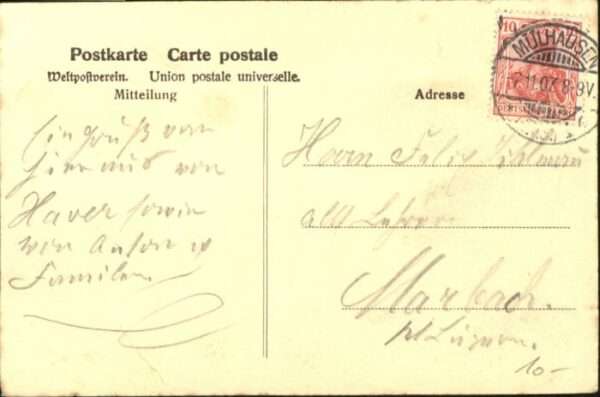 Postkarte Carte postale
Weltpostverein. Union postale universelle.
Mitteilung
Adresse
10
MÜLHAUSEN
7.11.07. 8-9V.
Ein Gruß von
hier aus von
Xaver sowie
von Anton u
Familie
Herrn Felix
alt Lehrer
Marbach.
Luzern.
10-